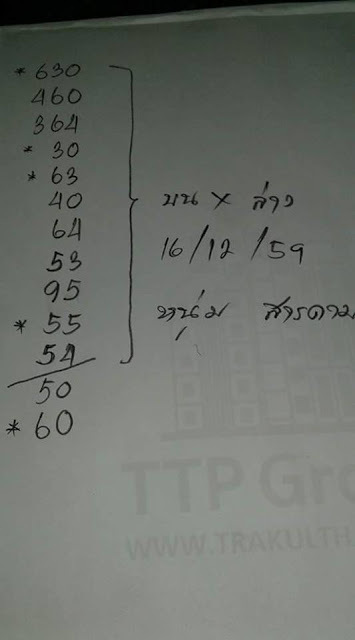 * 630
460
364
* 30
* 63
40
64
53
95
* 55
54
50
* 60
บน x ล่าง
16/12/59
หนุ่ม สารคาม
TTP Gro
WWW.TRAKULTH